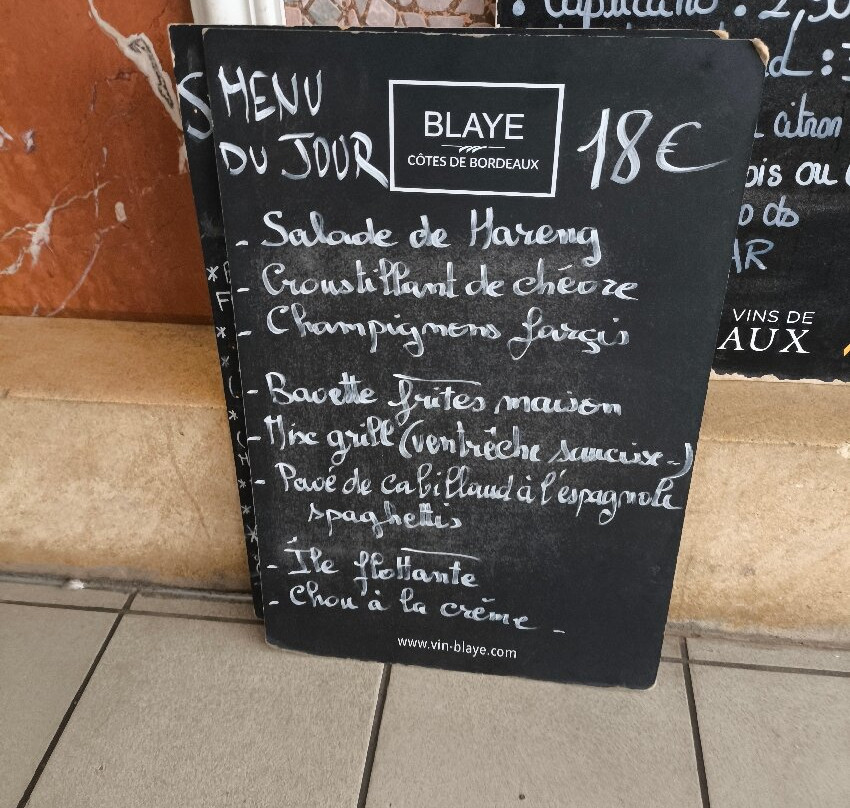 MENU
DU JOUR
BLAYE
CÔTES DE BORDEAUX
18€
- Salade de Hareng
- Croustillant de chèvre
- Champignons farçis
- Bavette frites maison
- Mix grill (ventrêche saucisse..)
- Pavé de cabillaud à l'espagnole
spaghettis
- Île flottante
- Chou à la crème
www.vin-blaye.com
• Capuccino : 2,50
citron
ois ou
AR
VINS DE
AUX